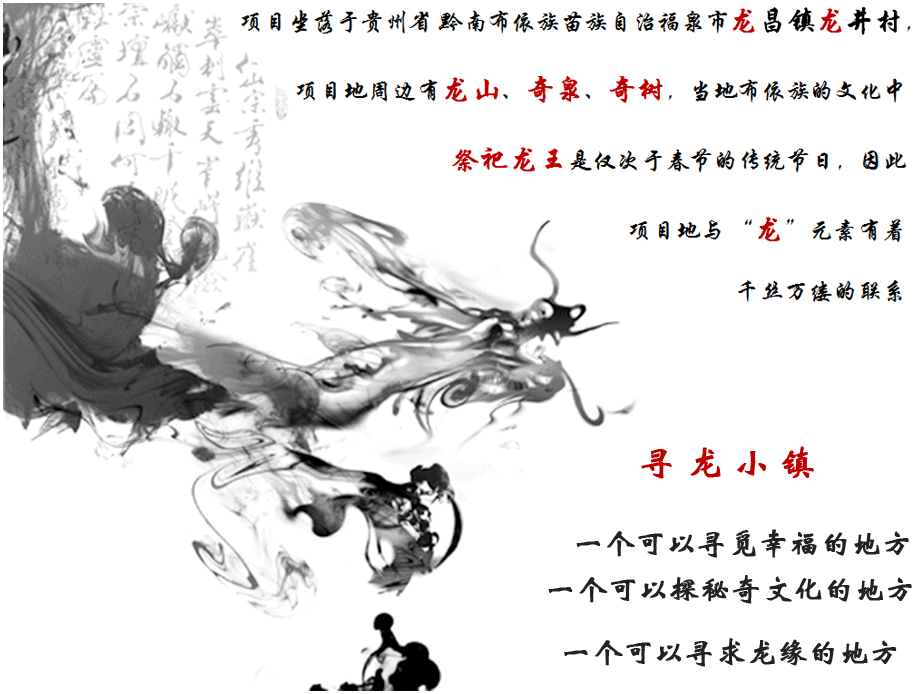 项目坐落于贵州省黔南布依族苗族自治福泉市龙昌镇龙井村，
项目地周边有龙山、奇泉、奇树，当地布依族的文化中
祭祀龙王是仅次于春节的传统节日，因此
项目地与“龙”元素有着
千丝万缕的联系
寻龙小镇
一个可以寻觅幸福的地方
一个可以探秘奇文化的地方
一个可以寻求龙缘的地方